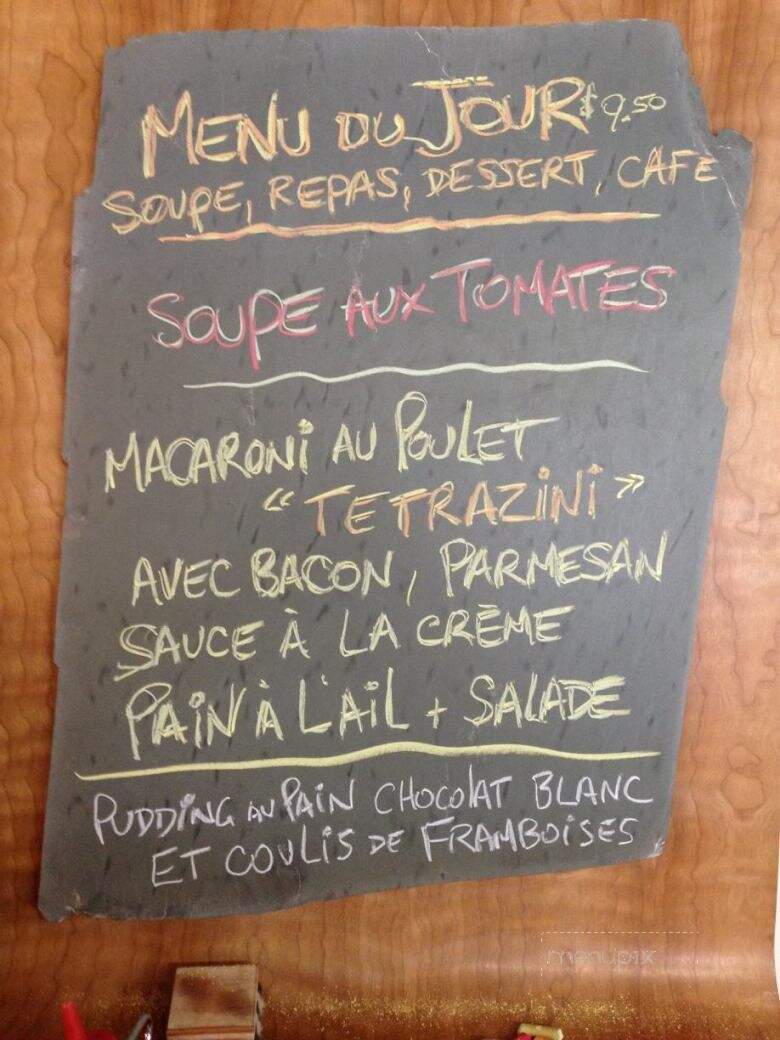 MENU DU JOUR $9.50
SOUPE, REPAS, DESSERT, CAFE
SOUPE AUX TOMATES
MACARONI AU POULET
« TETRAZINI »
AVEC BACON, PARMESAN
SAUCE À LA CRÈME
PAIN À L'AIL + SALADE
PUDDING AU PAIN CHOCOLAT BLANC
ET COULIS DE FRAMBOISES
menupix